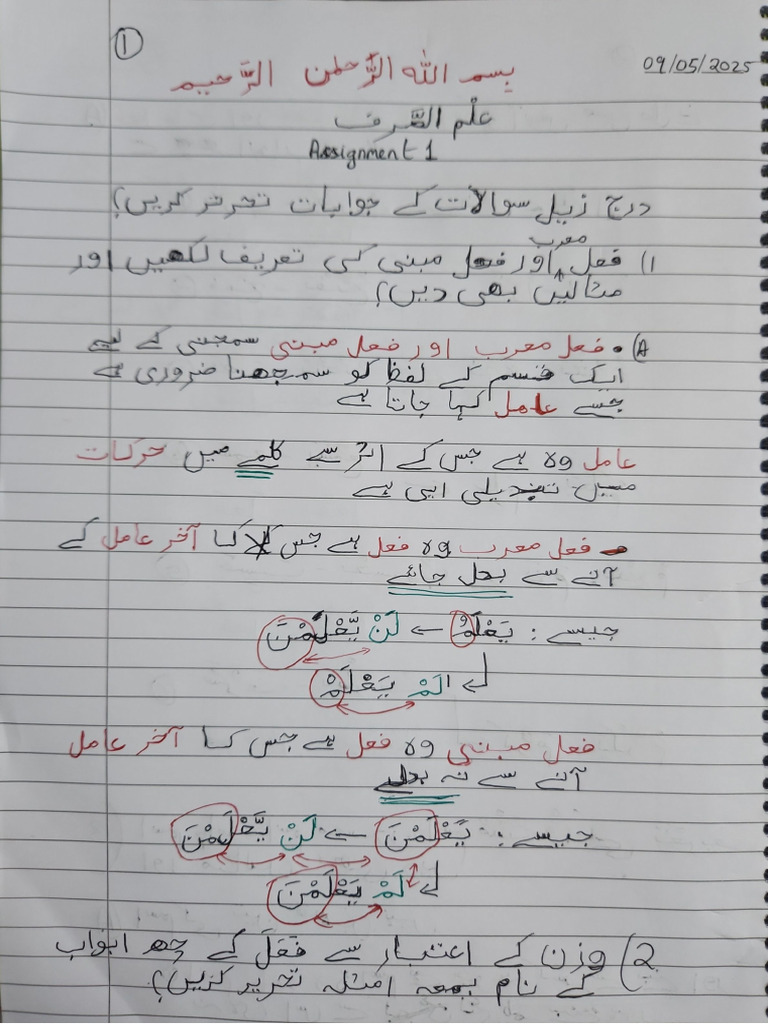 ①
09/05/2025
بِسم الله الرَّحمٰن الرَّحيم
علْم الصَّرف
Assignment 1
درج زیل سوالات کے جوابات تحریر کریں؟
1) فعل معرب اور فعل مبنی کی تعریف لکھیں اور
مثالیں بھی دیں؟
A) • فعل معرب اور فعل مبنی سمجنی کے لیے
ایک قسم کے لفظ کو سمجھنا ضروری ہے
جسے عامل کہا جاتا ہے
عامل وہ ہے جس کے اثر سے کلمے میں حرکات
میں تبدیلی اہی ہے
• فعل معرب وہ فعل ہے جس کا آخر عامل کے
آنے سے بدل جائے
جیسے : يَعْلَمُ ← لَنْ يَّعْلَمْنَ
↲ لَمْ يَعْلَمْ
فعل مبنی وہ فعل ہے جس کا آخر عامل
آنے سے نہ بدلے
جیسے : يَعْلَمْنَ ← لَنْ يَّعْلَمْنَ
↲ لَمْ يَعْلَمْنَ
2) وزن کے اعتبار سے فَعَلَ کے چھ ابواب
کے نام بمعہ امثلہ تحریر کریں؟